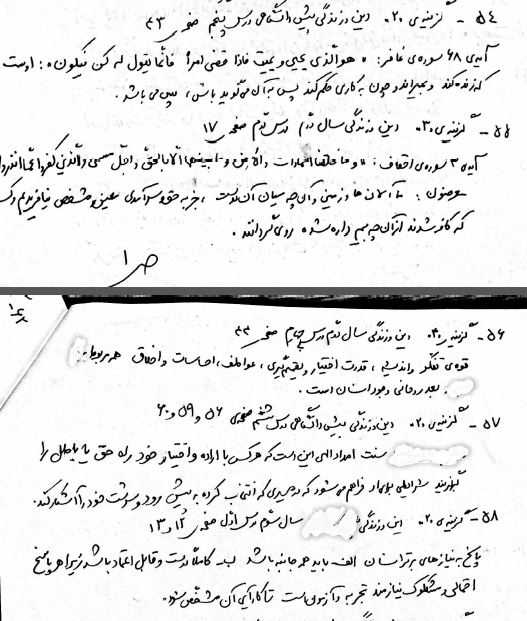 ۵۴ - گزینه‌ی ۲۰ دین و زندگی پیش دانشگاهی درس پنجم صفحه‌ی ۴۳
آیه‌ی ۶۸ سوره‌ی غافر: « هو الذی یحیی و یمیت فاذا قضی امراً فانما یقول له کن فیکون»: اوست
که زنده کند و بمیراند و چون به کاری حکم کند پس به آن می‌گوید باش، پس می باشد.
۵۵ - گزینه‌ی ۳۰ دین و زندگی سال دوم درس دوم صفحه‌ی ۱۷
آیه‌ی ۳ سوره‌ی احقاف: «و ما خلقنا السماوات و الارض و ما بینهما الا بالحق و اجل مسمی و الذین کفروا عما انذروا
معرضون: ما آسمان ها و زمین و آن چه میان آن هاست، جز به حق و سرآمدی معین و مشخص نیافریدیم و کسانی
که کافر شدند از آن چه بیم داده شده روی گردانند.
ص ۱
۵۶ - گزینه‌ی ۴۰ دین و زندگی سال دوم درس چهارم صفحه‌ی ۴۴
قوه‌ی تفکر و اندیشه، قدرت اختیار و تصمیم‌گیری، عواطف، احساسات و اخلاق همه مربوط به
بعد روحانی وجود انسان است.
۵۷ - گزینه‌ی ۲۰ دین و زندگی پیش دانشگاهی درس ششم صفحه‌ی ۵۶ و ۵۹ و ۶۰
سنت امداد الهی این است که هرکس با اراده و اختیار خود راه حق یا باطل را
برگزیند شرایطی برای او فراهم می‌شود که در مسیری که انتخاب کرده به پیش رود و سرشت خود را آشکار کند.
۵۸ - گزینه‌ی ۲۰ دین و زندگی سال سوم درس اول صفحه‌ی ۱۲ و ۱۳
پاسخ به نیازهای برتر انسان الف باید همه جانبه باشد ب کاملاً درست و قابل اعتماد باشد زیرا هر پاسخ
احتمالی و مشکوک نیازمند تجربه و آزمون است تا کارآیی آن مشخص شود.